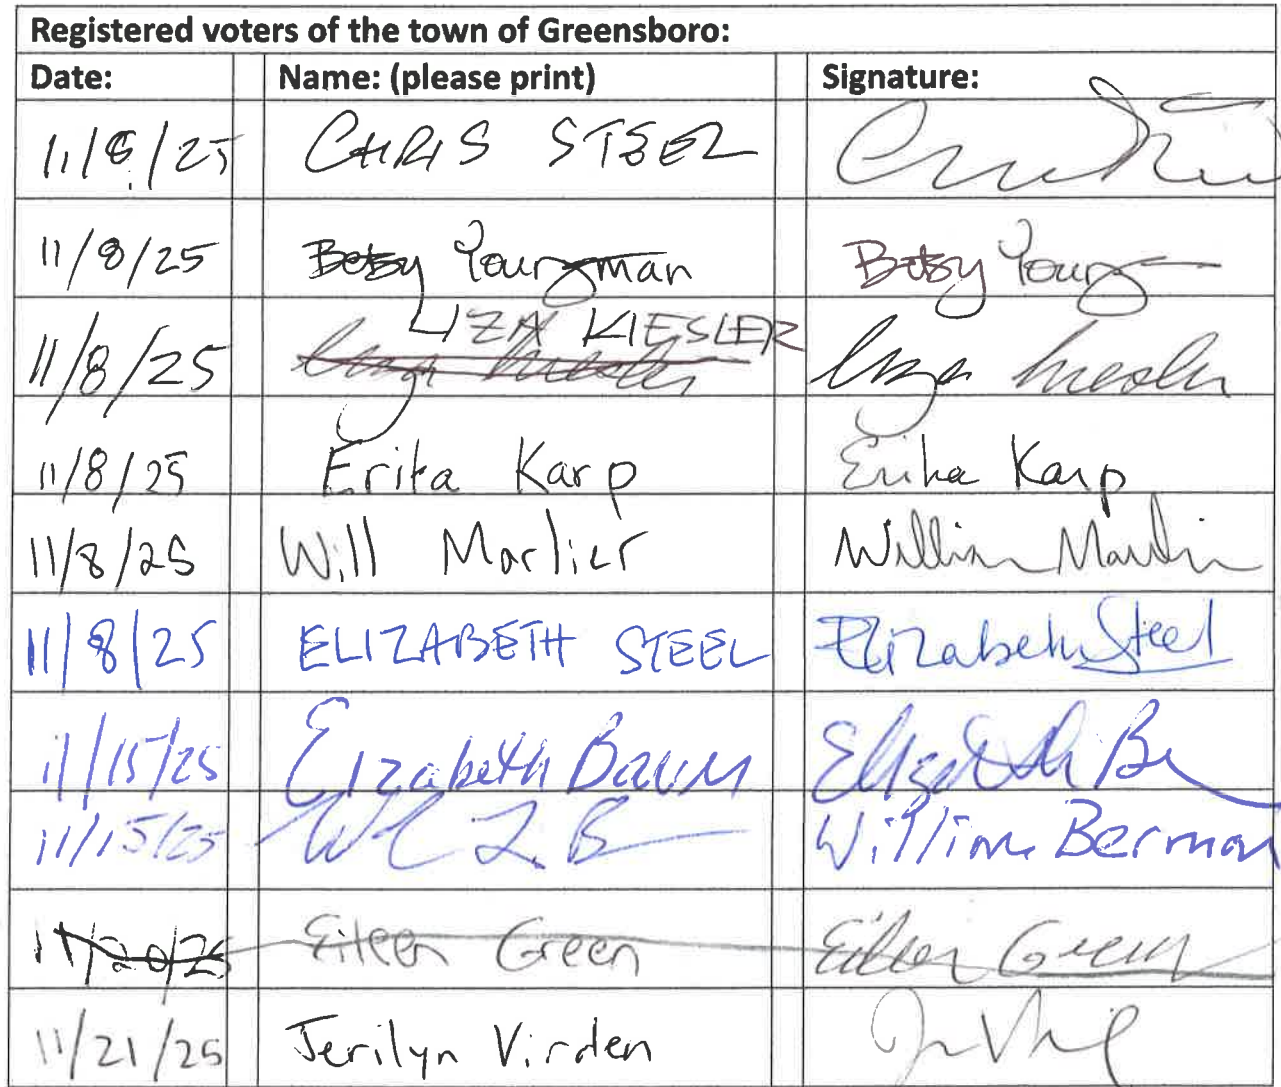 Registered voters of the town of Greensboro:
Date: Name: (please print) Signature:
11/8/25 CHRIS STEEL
11/8/25 Betsy Youngman Betsy Young
LIZA KIESLER
11/8/25 Liza Kiesler Liza Kiesler
11/8/25 Erika Karp Erika Karp
11/8/25 Will Marlier William Marlier
11/8/25 ELIZABETH STEEL Elizabeth Steel
11/15/25 Elzabeth Baum Elizabeth B
11/15/25 William Berman
11/20/25 Eileen Green Eileen Green
11/21/25 Jerilyn Virden